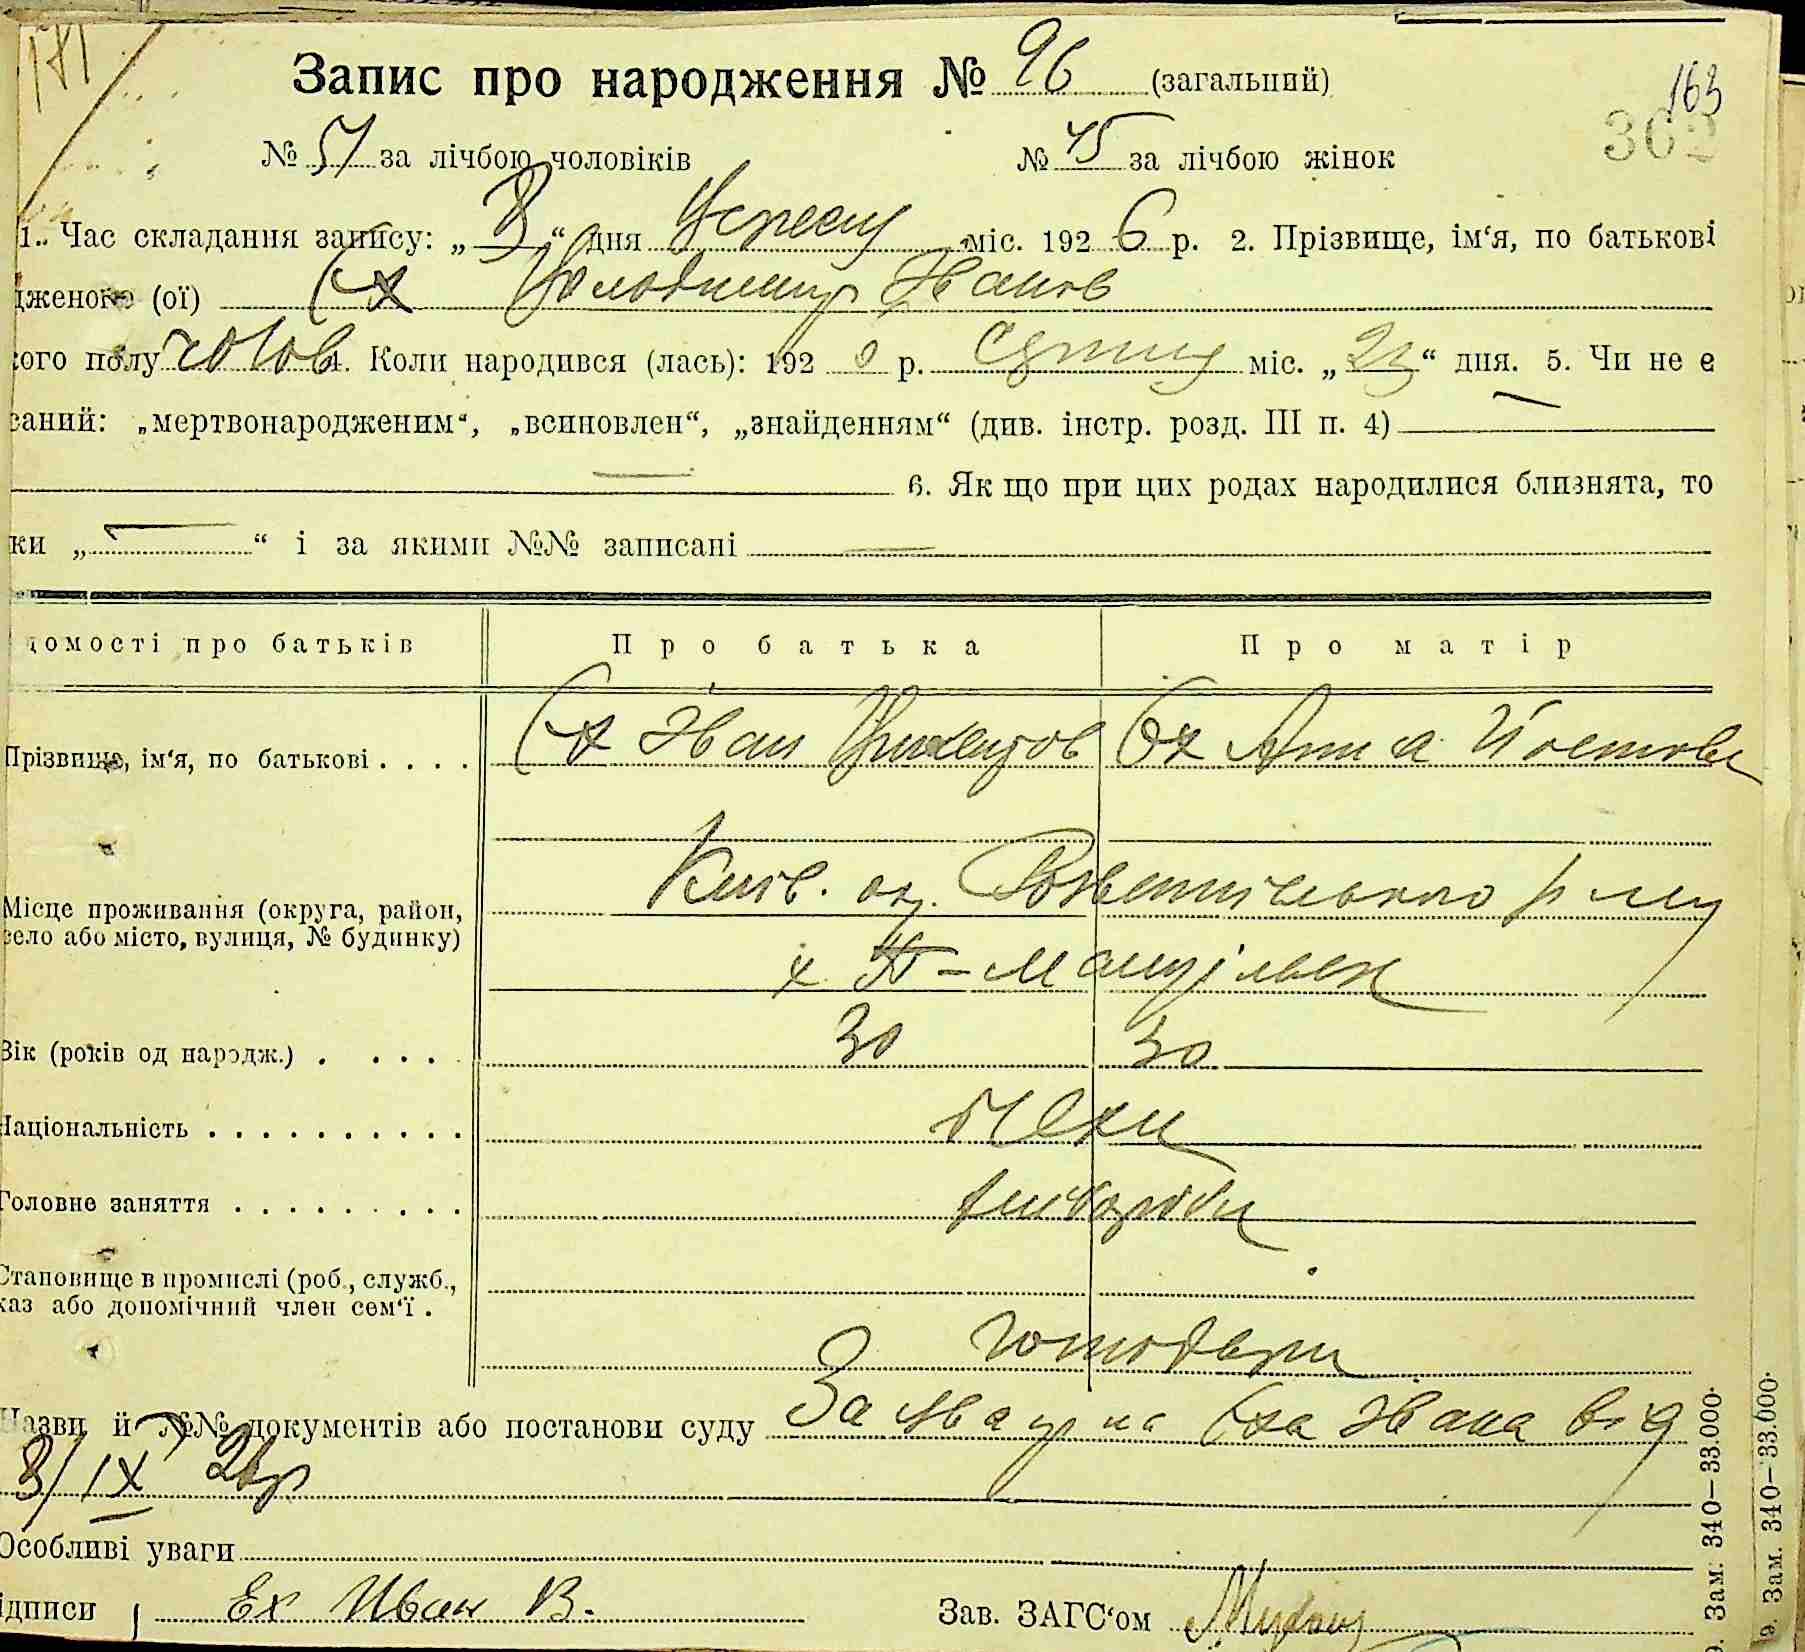 171
Запис про народження № 96 (загальний)
163
362
№ 51 за лічбою чоловіків № 45 за лічбою жінок
1. Час складання запису: „8“ дня Вересня міс. 1926 р. 2. Прізвище, ім‘я, по батькові
дженого (ої) Єх Володимир Іванов
кого полу чолов 4. Коли народився (лась): 192 р. Серпня міс. „23“ дня. 5. Чи не є
саний: „мертвонародженим“, „всиновлен“, „знайденням“ (див. інстр. розд. III п. 4)
6. Як що при цих родах народилися близнята, то
ки „ “ і за якими №№ записані
домості про батьків Про батька Про матір
Прізвище, ім‘я, по батькові . . . . Єх Іван Єх Анна
Місце проживання (округа, район, село або місто, вулиця, № будинку) Київ. ок.
х
Вік (років од народж.) . . . . . 30 30
Національність . . . . . . . . . . Чехи
Головне заняття . . . . . . . . . хлібороби
Становище в промислі (роб., служб., каз або допомічний член сем‘ї .
господарі
Назви й №№ документів або постанови суду Заява гр-на Єха Івана від
8/IX 26р
Особливі уваги
ідписи Ех Иван В. Зав. ЗАГС‘ом
9. Зам. 340—33.000.
9. Зам. 340—33.000.